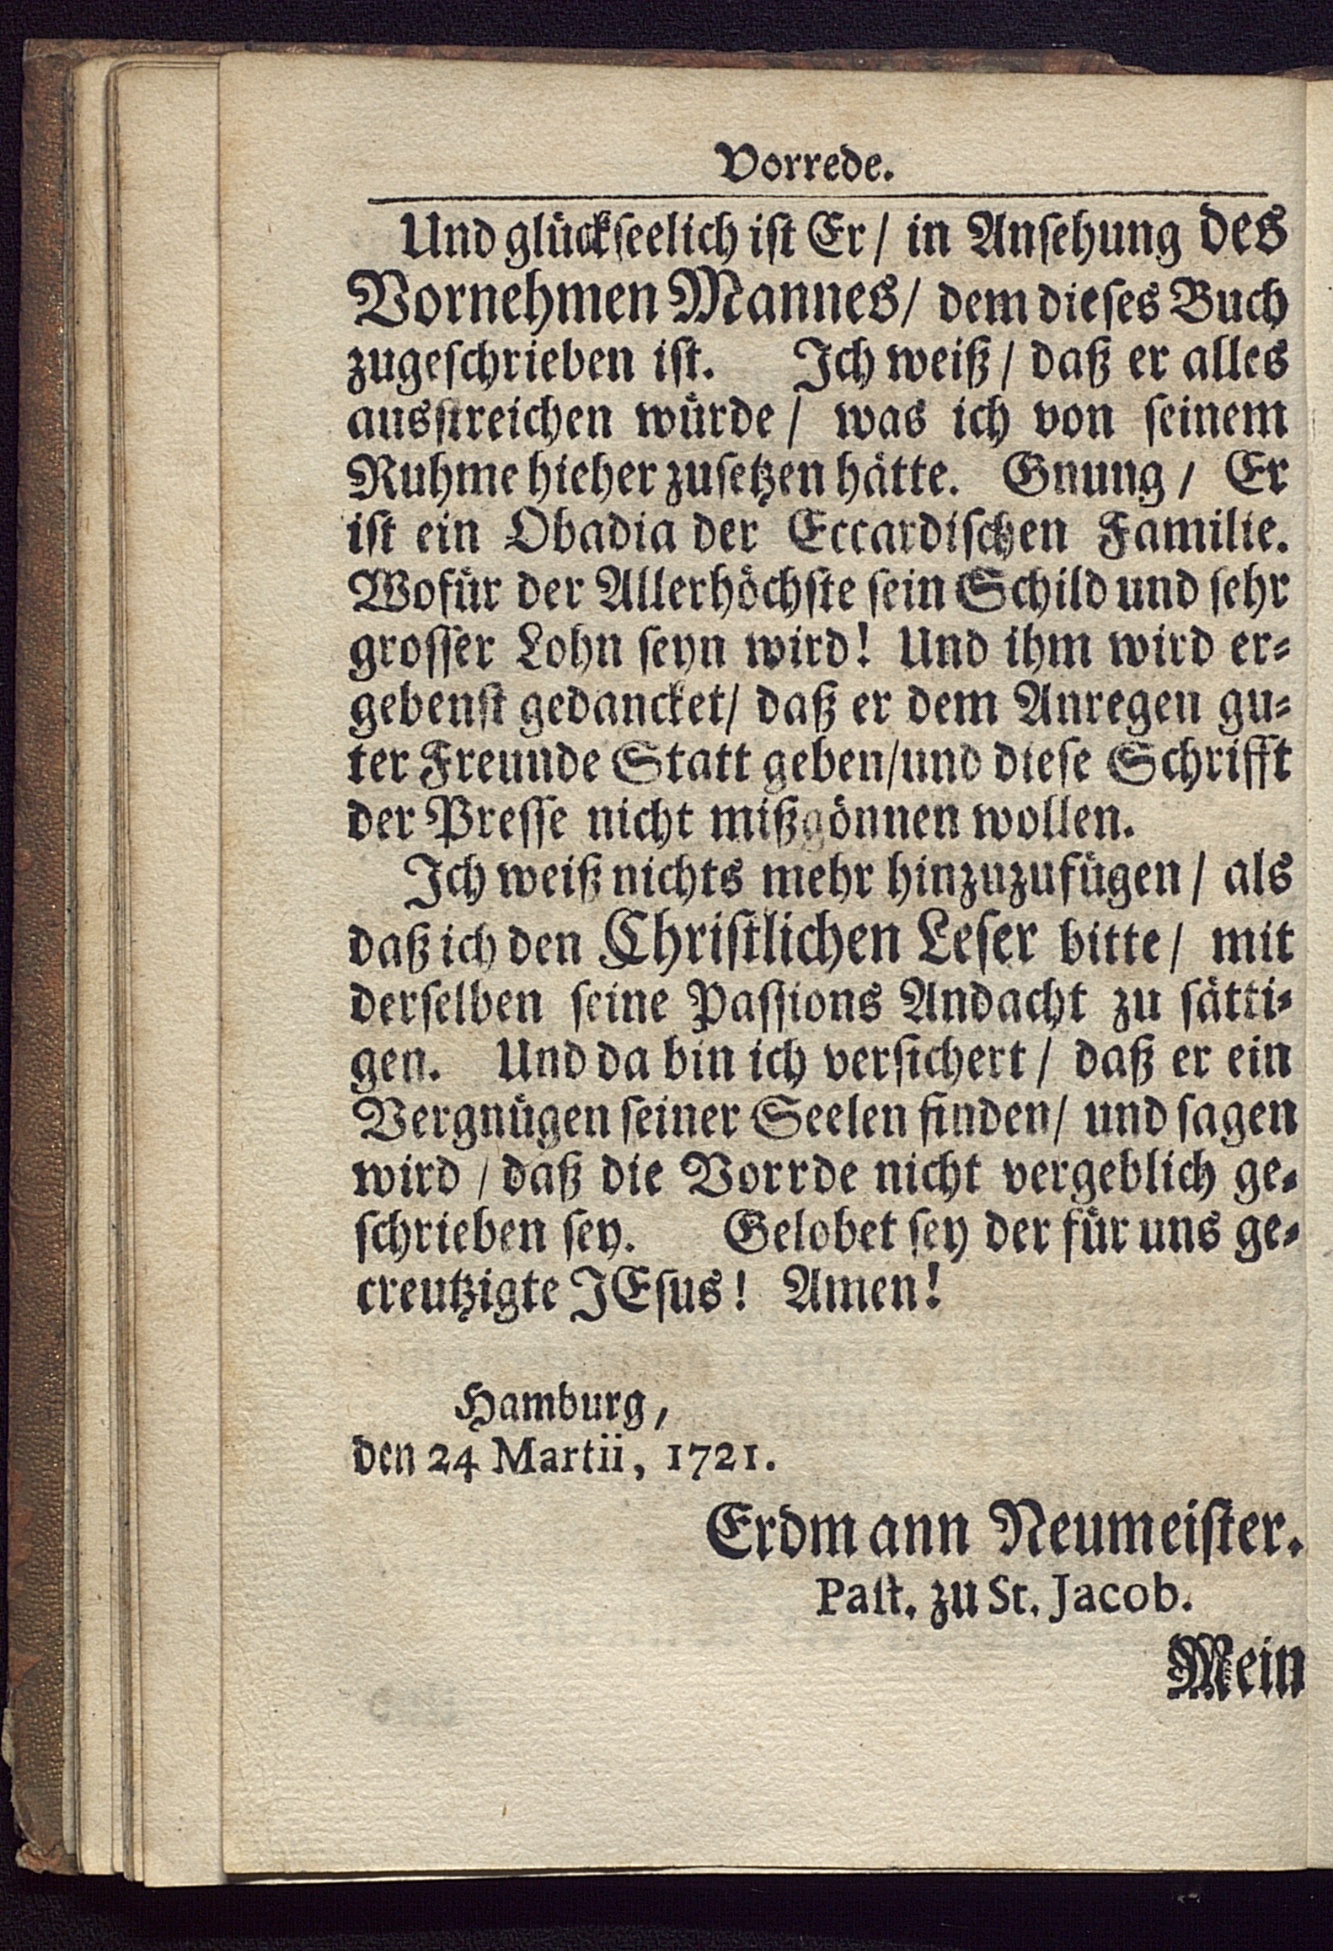 Vorrede.
Und glückseelich ist Er/ in Ansehung des
Vornehmen Mannes/ dem dieses Buch
zugeschrieben ist. Ich weiß/ daß er alles
ausstreichen würde/ was ich von seinem
Ruhme hieher zusetzen hätte. Gnung/ Er
ist ein Obadia der Eccardischen Familie.
Wofür der Allerhöchste sein Schild und sehr
grosser Lohn seyn wird! Und ihm wird er-
gebenst gedancket/ daß er dem Anregen gu-
ter Freunde Statt geben/ und diese Schrifft
der Presse nicht mißgönnen wollen.
Ich weiß nichts mehr hinzuzufügen/ als
daß ich den Christlichen Leser bitte/ mit
derselben seine Passions Andacht zu sätti-
gen. Und da bin ich versichert/ daß er ein
Vergnügen seiner Seelen finden/ und sagen
wird/ daß die Vorrde nicht vergeblich ge-
schrieben sey. Gelobet sey der für uns ge-
creutzigte JEsus! Amen!
Hamburg,
den 24 Martii, 1721.
Erdmann Neumeister.
Past. zu St. Jacob.
Mein